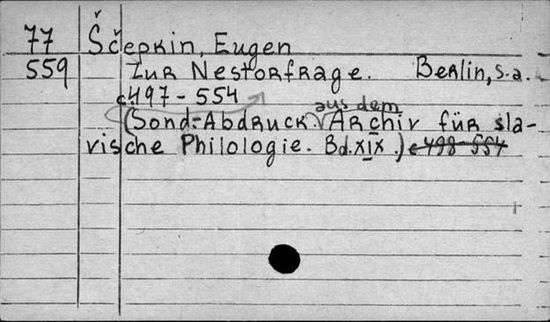 77 Ščepkin, Eugen
559 Zur Nestorfrage. Berlin, s.a.
c. 497-554
(Sond.-Abdruck aus dem Archiv für sla-
vische Philologie. Bd. XIX.) c 498-554